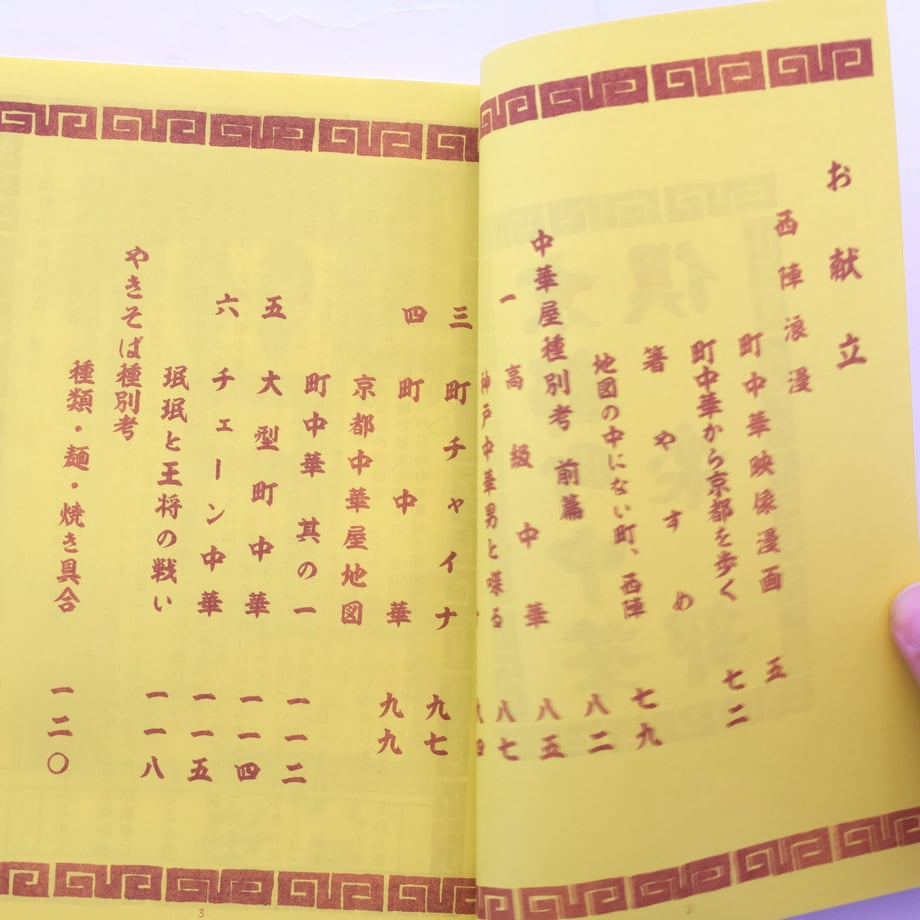 お献立
西陣浪漫
町中華映像漫画 五
町中華から京都を歩く 七二
箸やすめ
地図の中にない町、西陣 七九
中華屋種別考 前篇 八二
一 高級中華 八五
神戸中華男と喋る 八七
2
三 町チャイナ 九七
四 町中華 九九
京都中華屋地図
町中華 其の一 一一二
五 大型町中華 一一四
六 チェーン中華 一一五
珉珉と王将の戦い 一一八
やきそば種別考
種類・麺・焼き具合 一二〇
3